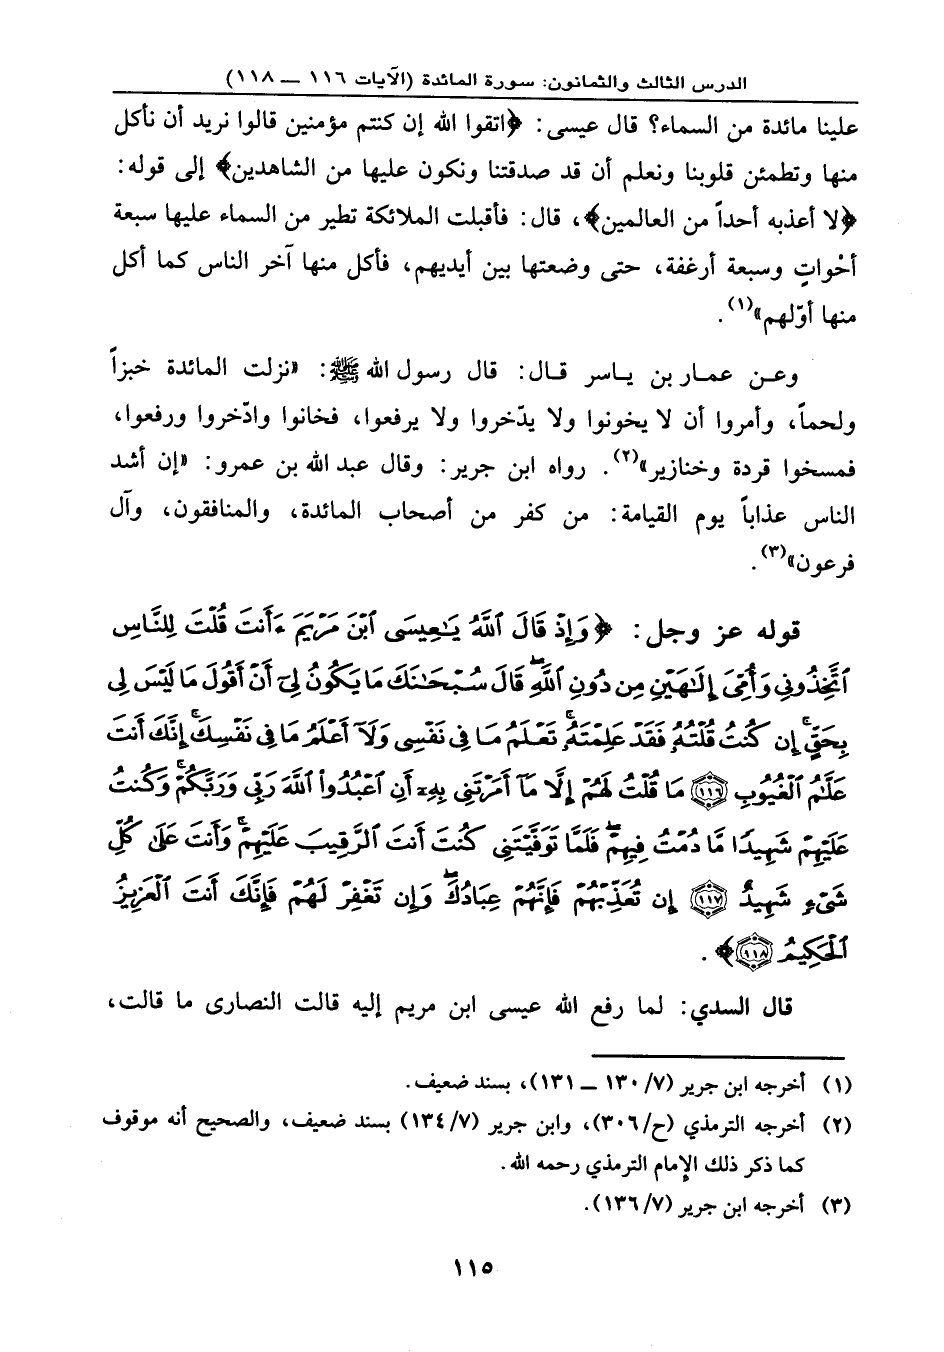 الدرس الثالث والثمانون: سورة المائدة (الآيات ١١٦ ــ ١١٨)
علينا مائدة من السماء؟ قال عيسى: ﴿اتقوا الله إن كنتم مؤمنين قالوا نريد أن نأكل
منها وتطمئن قلوبنا ونعلم أن قد صدقتنا ونكون عليها من الشاهدين﴾ إلى قوله:
﴿لا أعذبه أحداً من العالمين﴾، قال: فأقبلت الملائكة تطير من السماء عليها سبعة
أحْواتٍ وسبعة أرغفة، حتى وضعتها بين أيديهم، فأكل منها آخر الناس كما أكل
منها أوّلهم»(١).
وعن عمار بن ياسر قال: قال رسول الله ﷺ: «نزلت المائدة خبزاً
ولحماً، وأمروا أن لا يخونوا ولا يدّخروا ولا يرفعوا، فخانوا وادّخروا ورفعوا،
فمسخوا قردة وخنازير»(٢). رواه ابن جرير: وقال عبد الله بن عمرو: «إن أشد
الناس عذاباً يوم القيامة: من كفر من أصحاب المائدة، والمنافقون، وآل
فرعون»(٣).
قوله عز وجل: ﴿وَإِذْ قَالَ ٱللَّهُ يَٰعِيسَى ٱبْنَ مَرْيَمَ ءَأَنتَ قُلْتَ لِلنَّاسِ
ٱتَّخِذُونِي وَأُمِّيَ إِلَٰهَيْنِ مِن دُونِ ٱللَّهِۖ قَالَ سُبْحَٰنَكَ مَا يَكُونُ لِيٓ أَنْ أَقُولَ مَا لَيْسَ لِي
بِحَقٍّۚ إِن كُنتُ قُلْتُهُۥ فَقَدْ عَلِمْتَهُۥۚ تَعْلَمُ مَا فِي نَفْسِي وَلَآ أَعْلَمُ مَا فِي نَفْسِكَۚ إِنَّكَ أَنتَ
عَلَّٰمُ ٱلْغُيُوبِ ١١٦ مَا قُلْتُ لَهُمْ إِلَّا مَآ أَمَرْتَنِي بِهِۦٓ أَنِ ٱعْبُدُوا۟ ٱللَّهَ رَبِّي وَرَبَّكُمْۚ وَكُنتُ
عَلَيْهِمْ شَهِيدًا مَّا دُمْتُ فِيهِمْۖ فَلَمَّا تَوَفَّيْتَنِي كُنتَ أَنتَ ٱلرَّقِيبَ عَلَيْهِمْۚ وَأَنتَ عَلَىٰ كُلِّ
شَيْءٍ شَهِيدٌ ١١٧ إِن تُعَذِّبْهُمْ فَإِنَّهُمْ عِبَادُكَۖ وَإِن تَغْفِرْ لَهُمْ فَإِنَّكَ أَنتَ ٱلْعَزِيزُ
ٱلْحَكِيمُ ١١٨﴾.
قال السدي: لما رفع الله عيسى ابن مريم إليه قالت النصارى ما قالت،
(١) أخرجه ابن جرير (٧/ ١٣٠ ــ ١٣١)، بسند ضعيف.
(٢) أخرجه الترمذي (ح/٣٠٦)، وابن جرير (٧/ ١٣٤) بسند ضعيف، والصحيح أنه موقوف
كما ذكر ذلك الإمام الترمذي رحمه الله.
(٣) أخرجه ابن جرير (٧/ ١٣٦).
١١٥